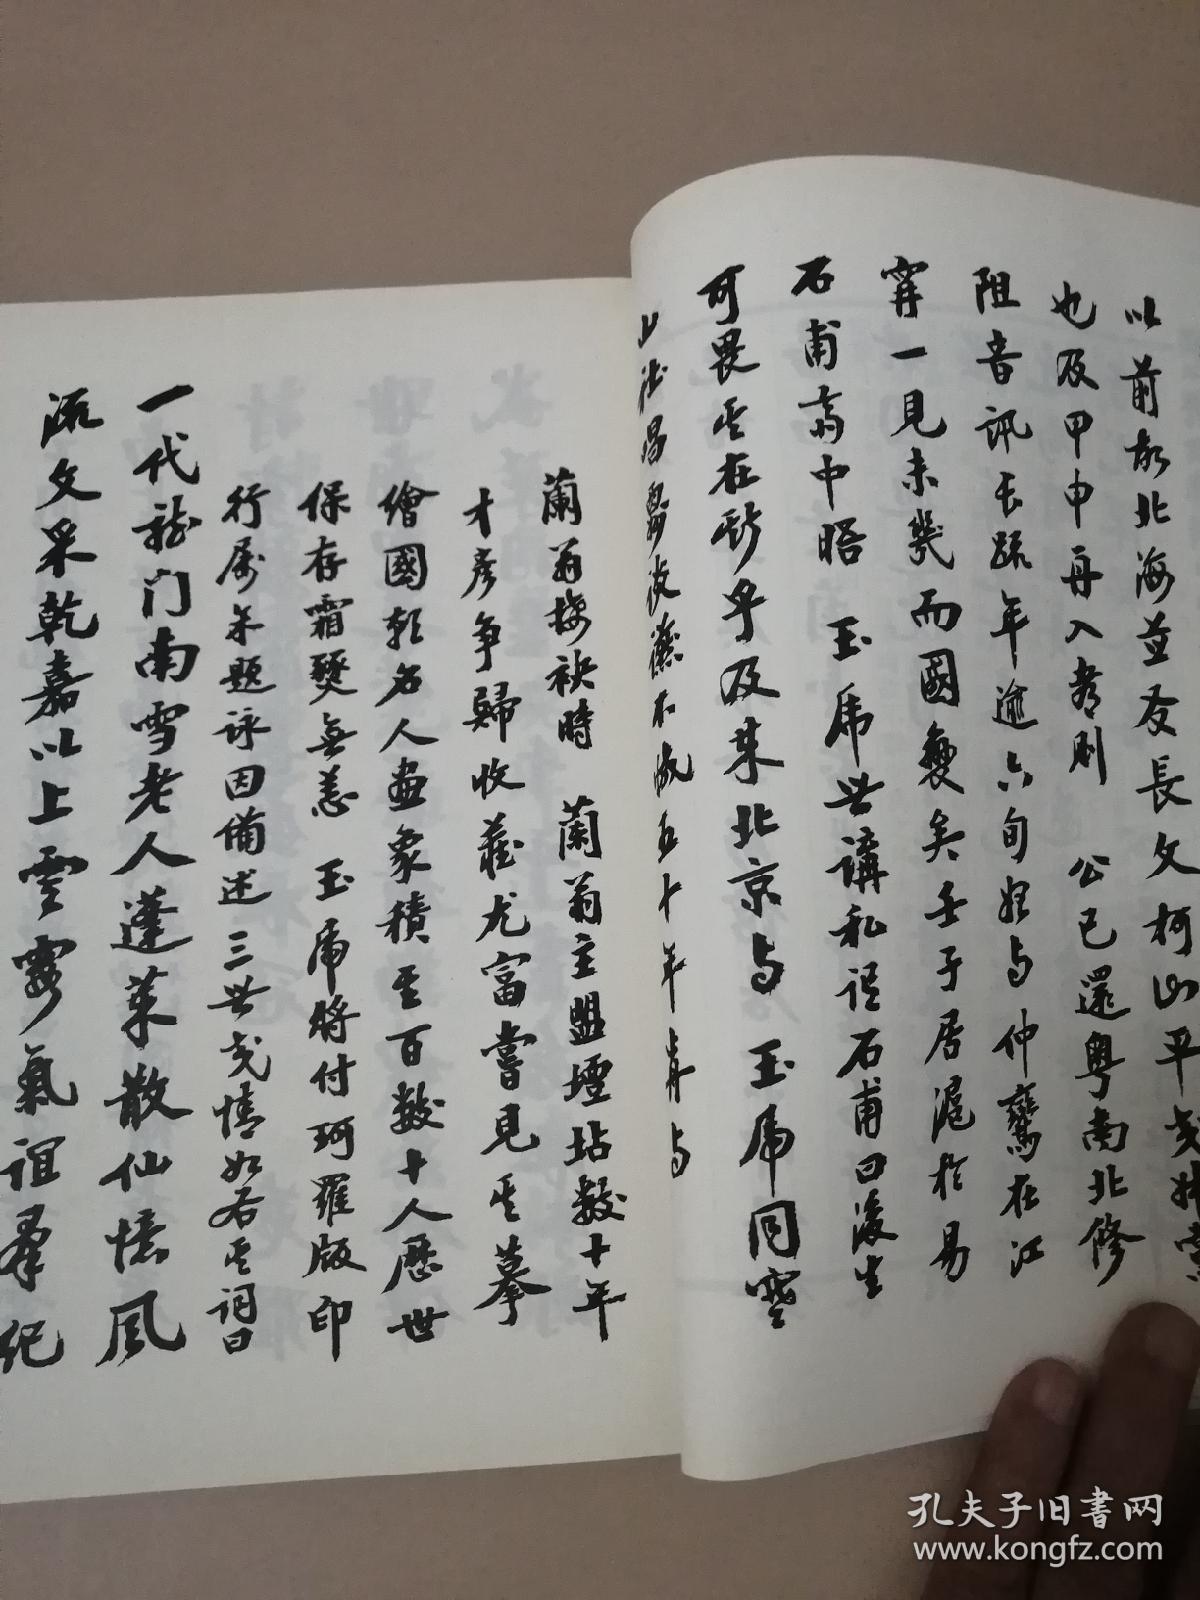 以前故北海並友長文柯山平
也及甲申再入考則 公已還粵南北修
阻音訊長疏年逾六旬始与仲鸞在江
甯一見未幾而國變矣壬子居滬於易
石甫齋中晤 玉甫世講私謂石甫曰後生
可畏其在斯乎及某北京与玉甫同
社
不
五十年
与
蘭翁接袂時 蘭翁主盟壇坫數十年
才彥爭歸收藏尤富嘗見其摹
繪國朝名人畫象積至百數十人歷世
保存霜燹無恙 玉甫將付珂羅版印
行屬余題詠因備述三世交情如右其詞曰
一代龍门南雪老人蓬萊散仙憶風
流文采乾嘉以上雲雰氣誼羣紀
孔夫子旧書网
www.kongfz.com